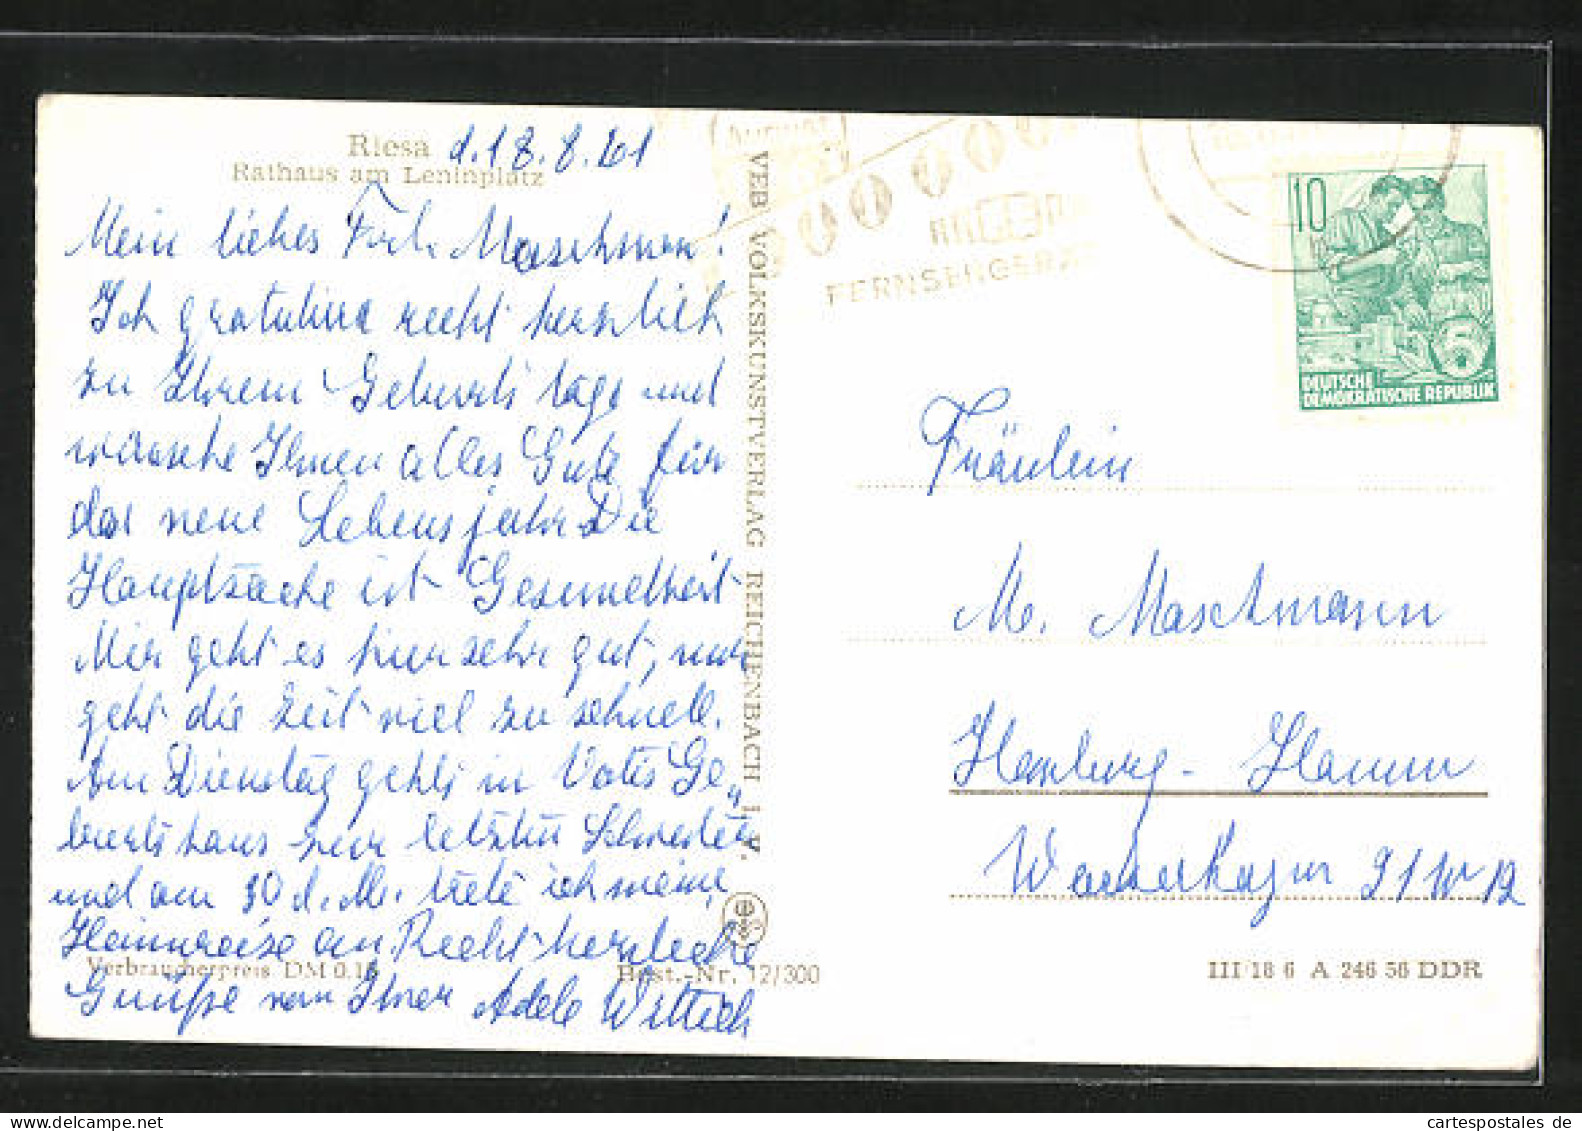 Riesa d. 18.8.61
Rathaus am Leninplatz
Mein liebes Frl. Maschman!
Ich gratuliere recht herzlich
zu Ihrem Geburtstage und
wünsche Ihnen alles Gute für
das neue Lebensjahr. Die
Hauptsache ist Gesundheit
Mir geht es hier sehr gut, nur
geht die Zeit viel zu schnell.
Am Dienstag gehts in Vatis Ge„
burtshaus zur letzten Schwester
und am 30 d. M. trete ich meine
Heimreise an. Recht herzliche
Grüße von Ihrer Adele Wittich
Verbraucherpreis DM 0.15
Best.-Nr. 12/300
VEB VOLKSKUNSTVERLAG REICHENBACH I. V.
FERNSEHGERÄT
10
5
DEUTSCHE
DEMOKRATISCHE REPUBLIK
Fräulein
M. Maschmann
Hamburg - Hamm
III/18 6 A 246 56 DDR
cartespostales de
www.cartespostales.de